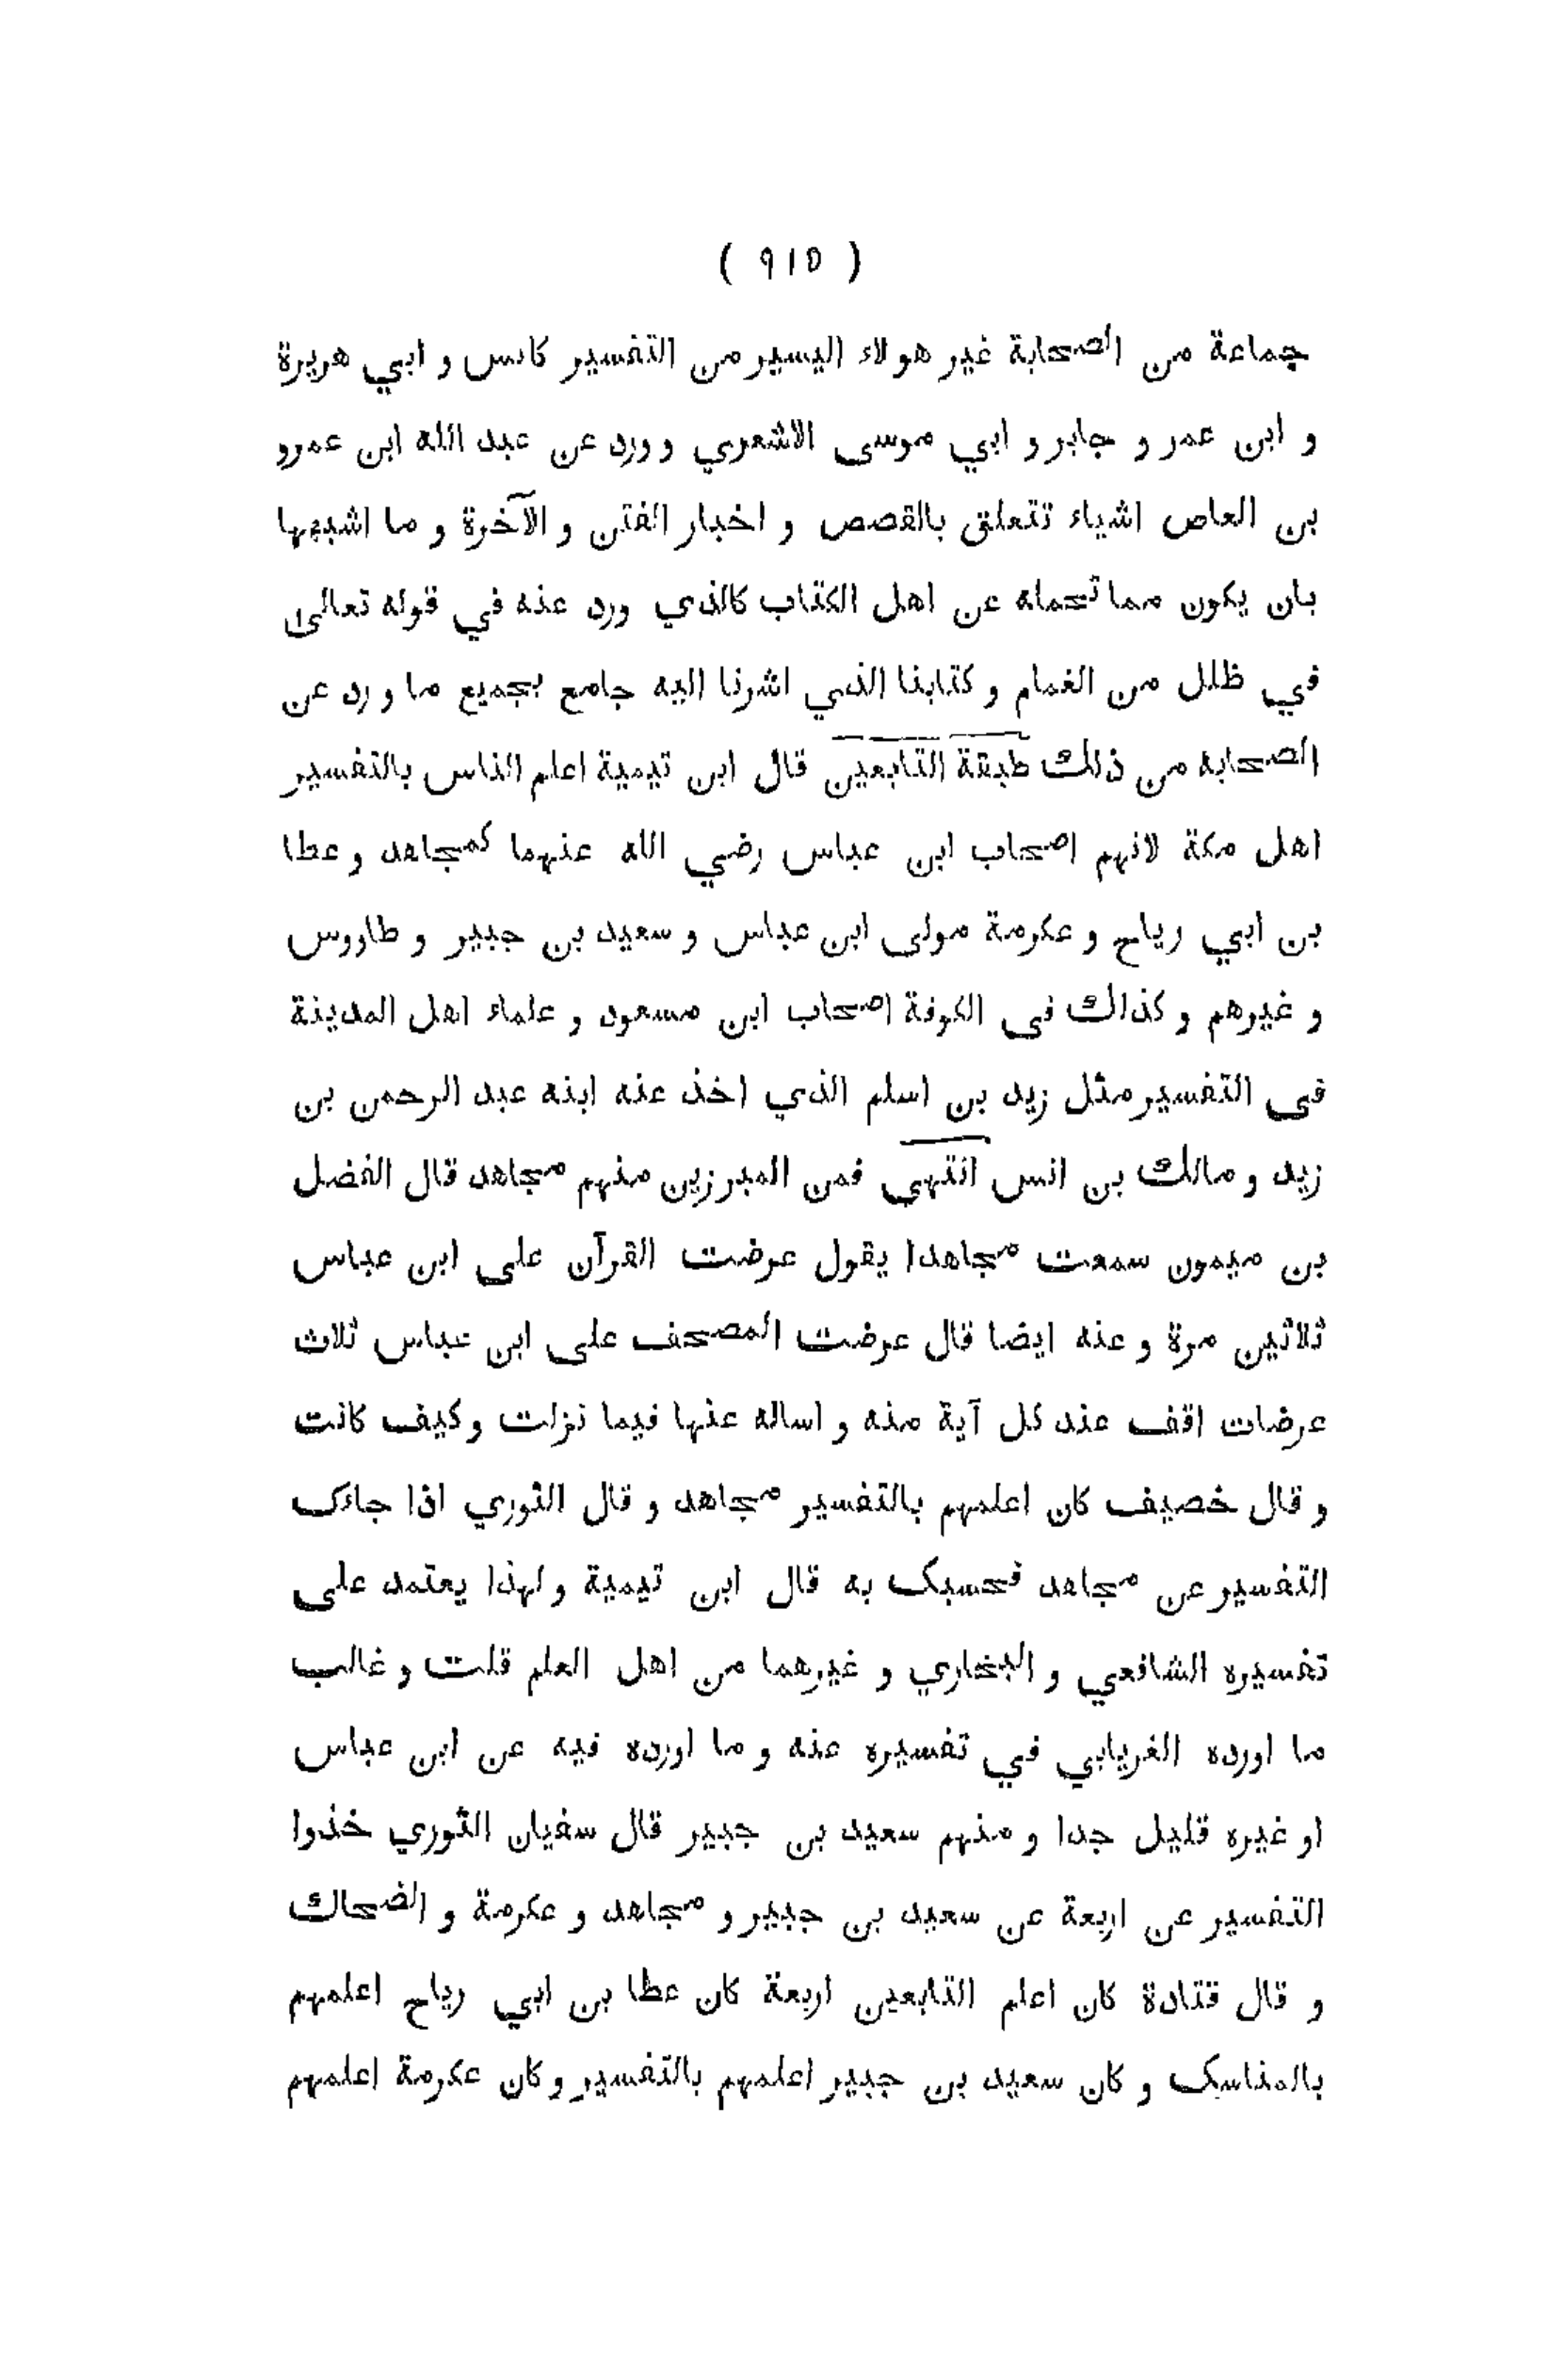 ( ٩١٥ )
جماعة من الصحابة غير هولاء اليسير من التفسير كانس و ابي هريرة
و ابن عمر و جابر و ابي موسى الاشعري و ورد عن عبد الله ابن عمرو
بن العاص اشياء تتعلق بالقصص و اخبار الفتن و الآخرة و ما اشبهها
بان يكون مما تحمله عن اهل الكتاب كالذي ورد عنه في قوله تعالى
في ظلل من الغمام و كتابنا الذي اشرنا اليه جامع بجميع ما ورد عن
الصحابه من ذلك طبقة التابعين قال ابن تيمية اعلم الناس بالتفسير
اهل مكة لانهم اصحاب ابن عباس رضي الله عنهما كمجاهد و عطا
بن ابي رياح و عكرمة مولى ابن عباس و سعيد بن جبير و طاروس
و غيرهم و كذالك فى الكوفة اصحاب ابن مسعود و علماء اهل المدينة
فى التفسير مثل زيد بن اسلم الذي اخذ عنه ابنه عبد الرحمن بن
زيد و مالك بن انس انتهى فمن المبرزين منهم مجاهد قال الفضل
بن ميمون سمعت مجاهدا يقول عرضت القرآن على ابن عباس
ثلاثين مرة و عنه ايضا قال عرضت المصحف على ابن عباس ثلاث
عرضات اقف عند كل آية منه و اساله عنها فيما نزلت و كيف كانت
و قال خصيف كان اعلمهم بالتفسير مجاهد و قال الثوري اذا جاءک
التفسير عن مجاهد فحسبک به قال ابن تيمية و لهذا يعتمد على
تفسيره الشافعي و البخاري و غيرهما من اهل العلم قلت و غالب
ما اورده الفريابي في تفسيره عنه و ما اورده فيه عن ابن عباس
او غيره قليل جدا و منهم سعيد بن جبير قال سفيان الثوري خذوا
التفسير عن اربعة عن سعيد بن جبير و مجاهد و عكرمة و الضحاك
و قال قتادة كان اعلم التابعين اربعة كان عطا بن ابي رياح اعلمهم
بالمناسک و كان سعيد بن جبير اعلمهم بالتفسير و كان عكرمة اعلمهم